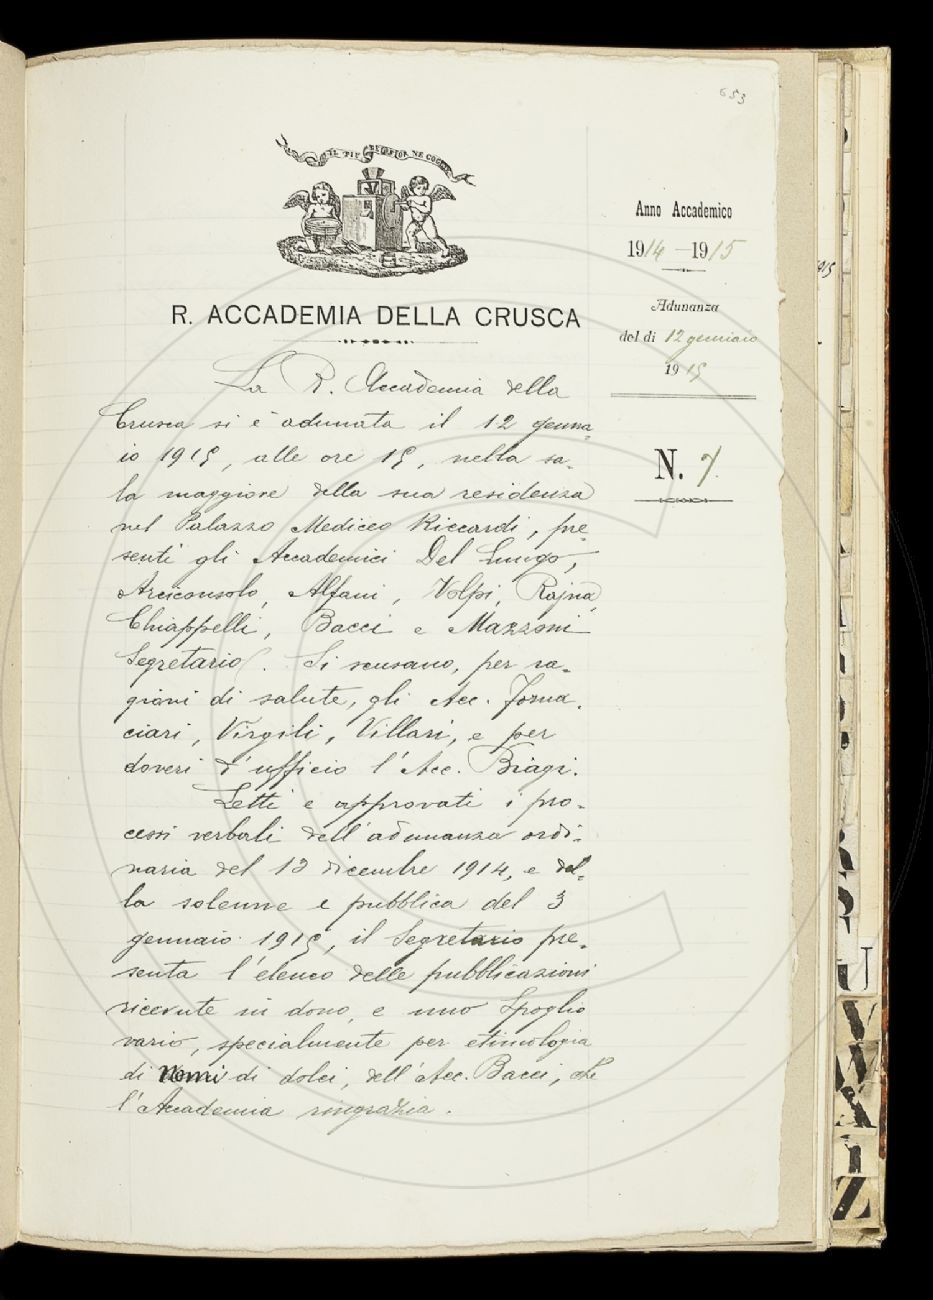 653
IL PIÙ BEL FIOR NE COGLIE
R. ACCADEMIA DELLA CRUSCA
Anno Accademico
1914-1915
Adunanza
del dì 12 gennaio
1915
N. 7.
La R. Accademia della
Crusca si è adunata il 12 genna-
io 1915, alle ore 15, nella sa-
la maggiore della sua residenza
nel Palazzo Mediceo Riccardi, pre-
senti gli Accademici Del Lungo,
Arciconsolo, Alfani, Volpi, Rajna,
Chiappelli, Bacci e Mazzoni
Segretario. Si scusano, per ra-
gioni di salute, gli Acc. Forna-
ciari, Virgili, Villari, e per
doveri d'ufficio l'Acc. Biagi.
Letti e approvati i pro-
cessi verbali dell'adunanza ordi-
naria del 13 dicembre 1914, e del-
la solenne e pubblica del 3
gennaio 1915, il Segretario pre-
senta l'elenco delle pubblicazioni
ricevute in dono, e uno Spoglio
vario, specialmente per etimologia
di nomi di dolci, dell'Acc. Bacci, che
l'Accademia ringrazia.
U
V
W
X
Y
Z